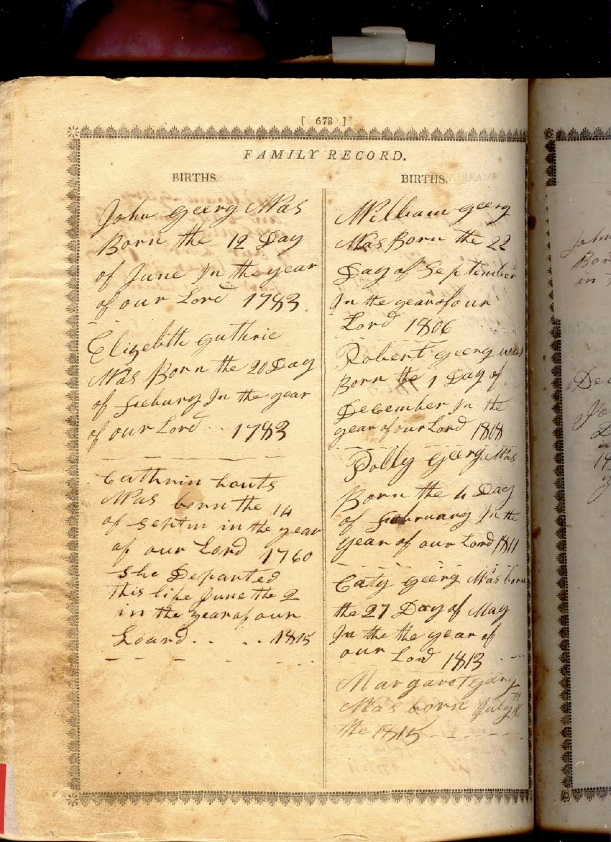 [ 678 ]
FAMILY RECORD.
BIRTHS.
John Georg Was
Born the 12 Day
of June In the year
of our Lord 1783
Elizebith guthrie
Was Born the 20 Day
of In the year
of our Lord 1783
Cathrin houts
Was born the 14
of Septm in the year
of our Lord 1760
She Departed
this life June the 2
in the year of our
Loard 1815
BIRTHS.
William georg
Was Born the 22
Day of September
In the year of our
Lord 1806
Robert georg was
Born the 1 Day of
December In the
year of our Lord 1808
Polly Georg Was
Born the 4 Day
of February In the
year of our Lord 1811
Caty georg Was born
the 27 Day of May
In the the year of
our Lord 1813
Margaret
Was born July
the 1815